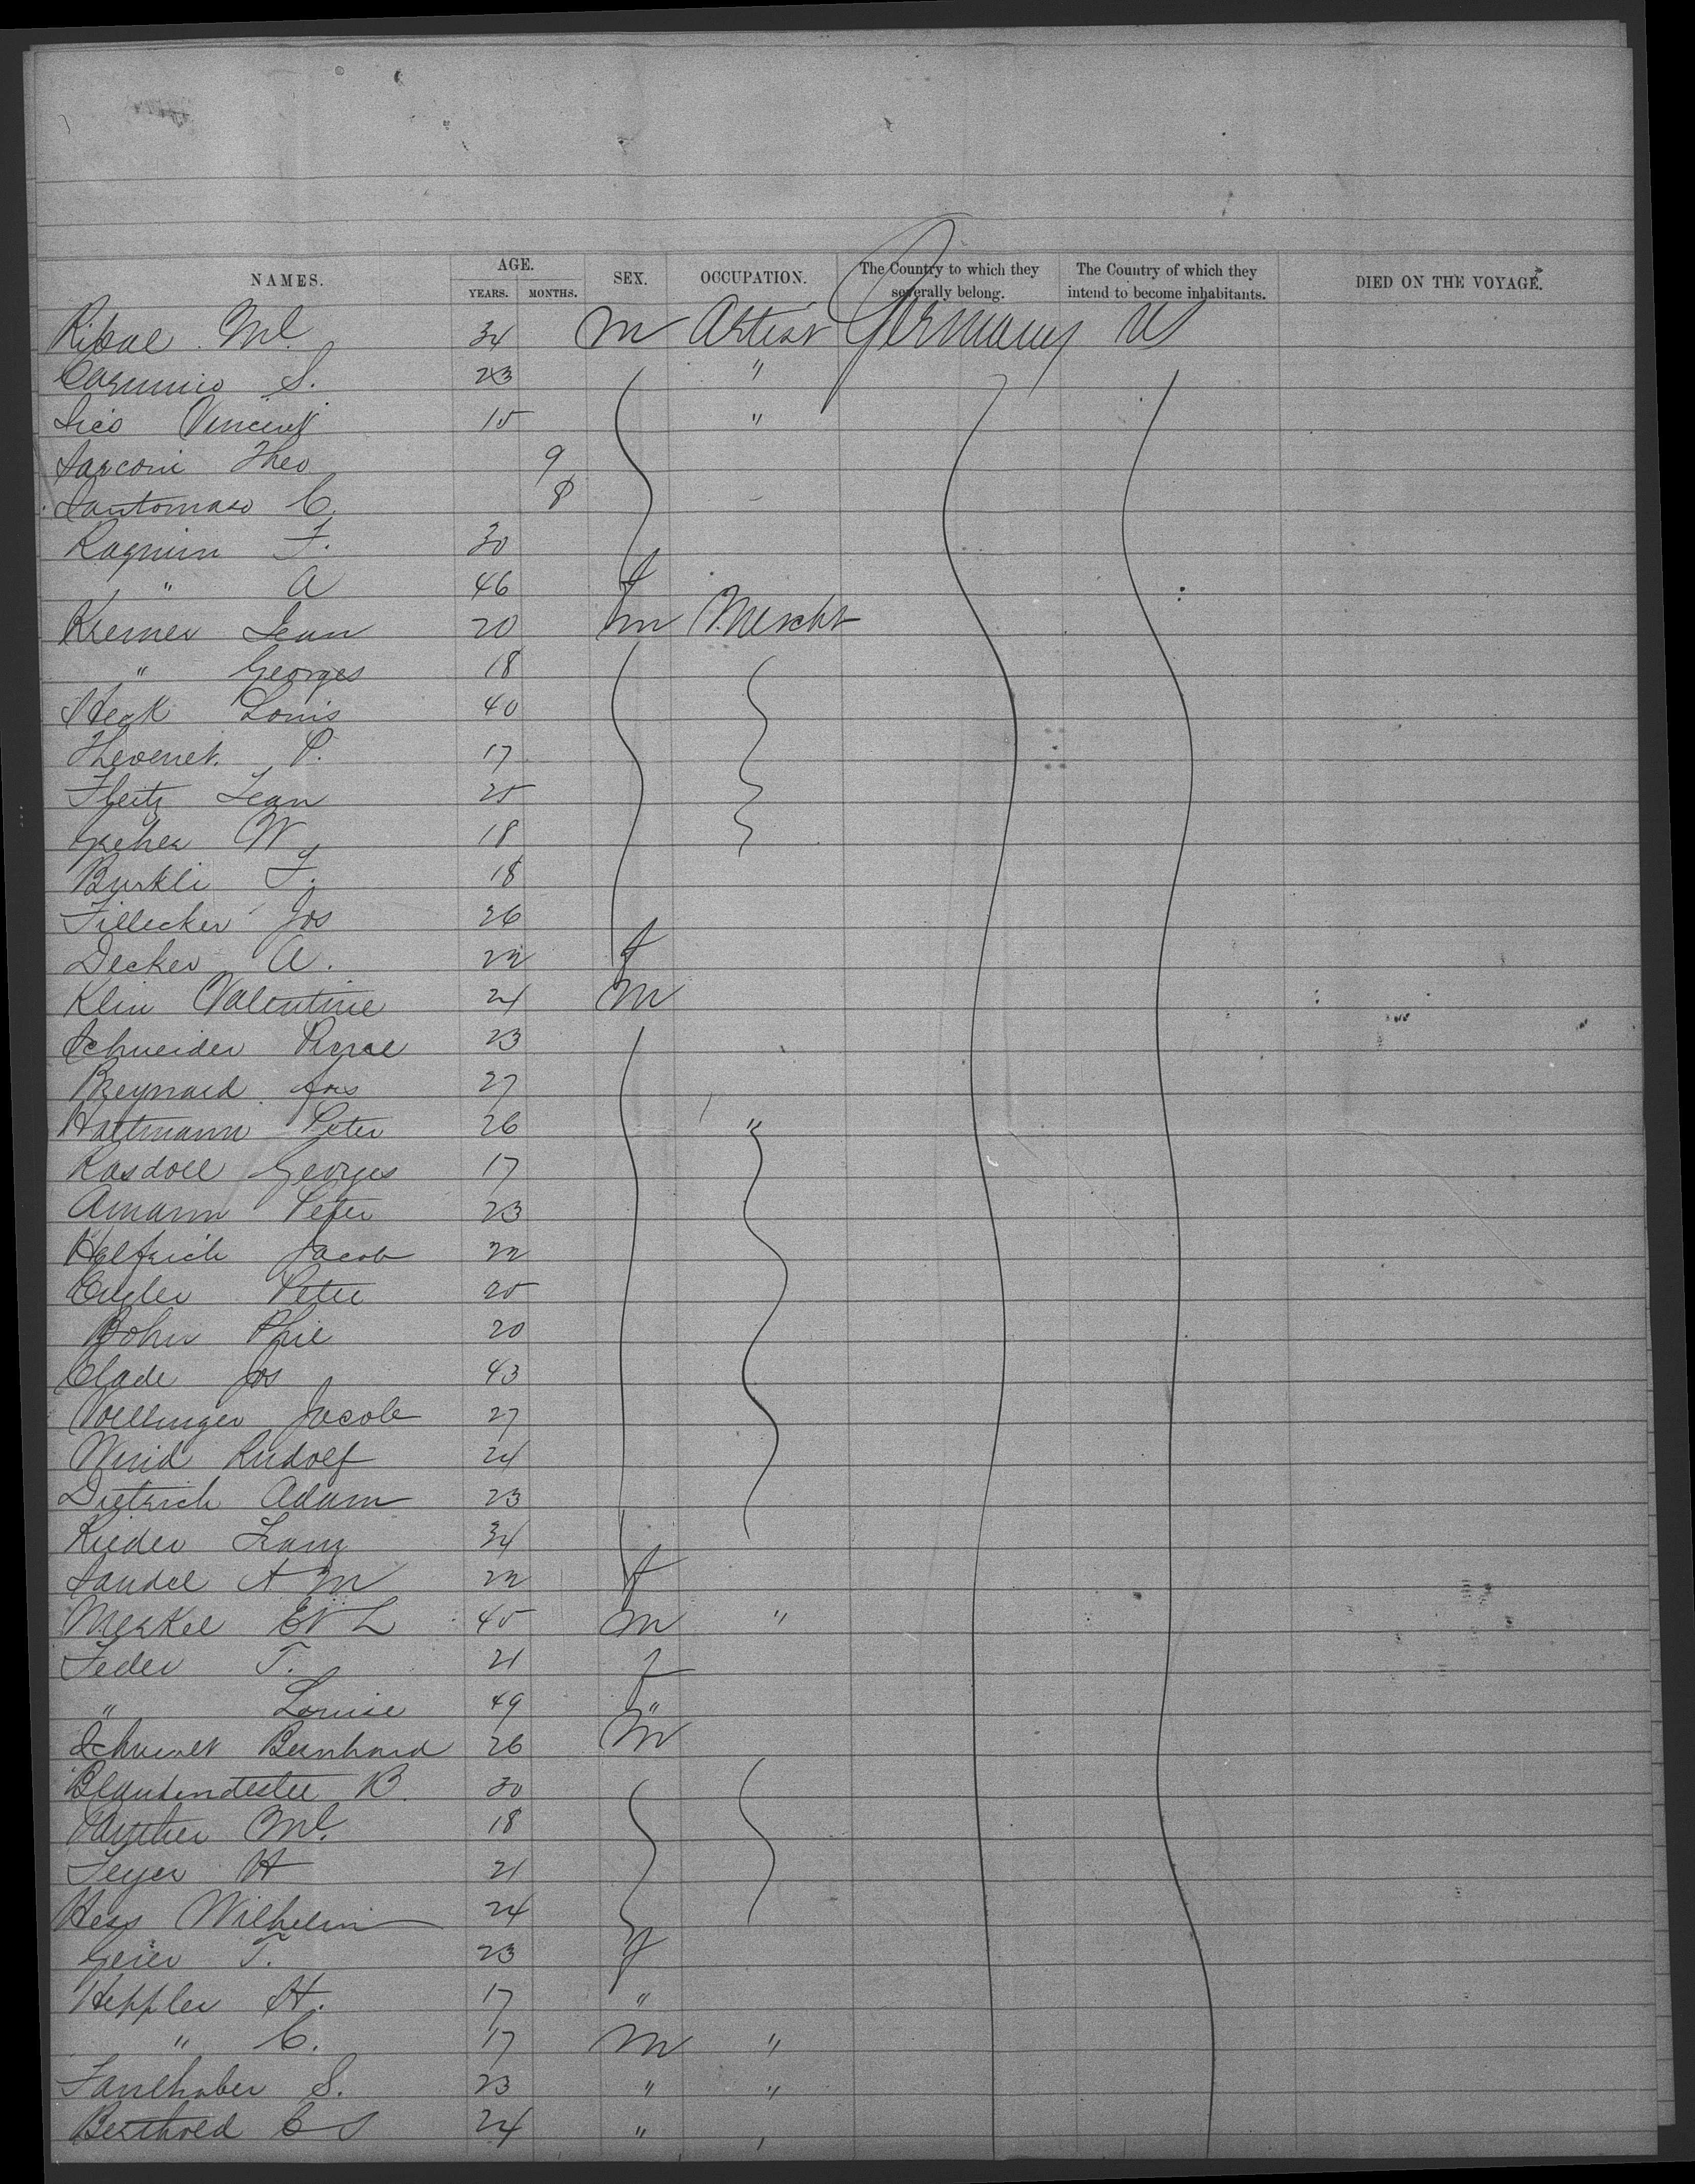 NAMES. AGE. SEX. OCCUPATION. The Country to which they severally belong. The Country of which they intend to become inhabitants. DIED ON THE VOYAGE.
YEARS. MONTHS.
Ml. 34 m Artist Germany US
S. 23 "
Vincent 15 "
Sarconi Theo 9
Santomaso C. 8
F. 30
" A 46 f
Kremer Jean 20 m Mercht
" Georges 18
Heck Louis 40
Thevenet P. 17
Jean 25
W 18
Burkli F. 18
Fillecker Jos 26
Decker A. 22 f
Klin Valentine 24 m
Schneider 23
27
Hattmann Peter 26 "
Rasdoll Georges 17
Amann Peter 23
Helfrich Jacob 22
Engler Peter 25
Bohn Phil 20
Clade Jos 43
Vollinger Jacob 27
Rudolf 24
Dietrich Adam 23
Rieder 34
Sandel A M 22 f
Merkel L 45 m "
Feder T. 21 f
" Louise 49 "
Bernhard 26 m
B. 30
Ml. 18
Feyer H 21
Hess Wilhelm 24
Geier T. 23 f
Heppler H. 17 "
" C. 17 m "
Faulhaber S. 23 " "
Berthold C S 24 "